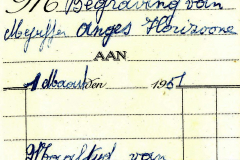 M Begraving van
Mejuffer Anges Horizoone
AAN
1 Maart den 1951
Maaltijd van